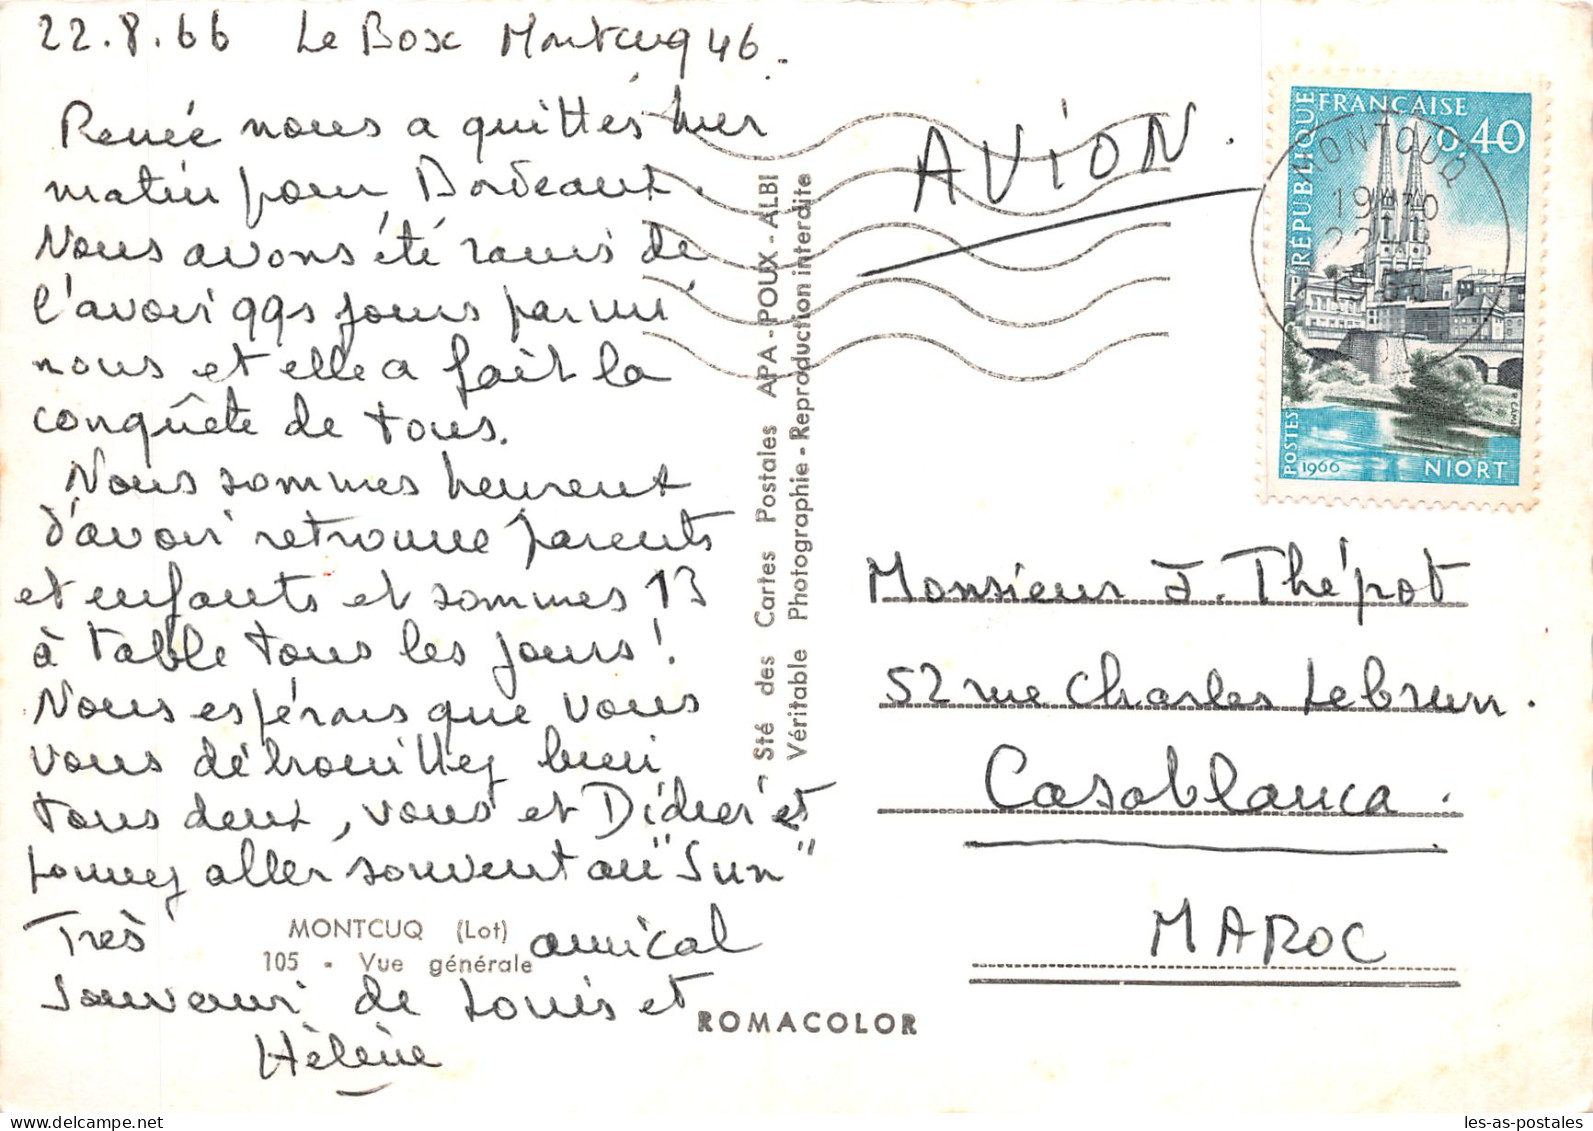 22.8.66 Le Bosc Montcuq 46.
Renée nous a quittés hier
matin pour Bordeaux.
Nous avons été ravis de
l'avoir qqs jours parmi
nous et elle a fait la
conquête de tous.
Nous sommes heureux
d'avoir retrouvé parents
et enfants et sommes 13
à table tous les jours !
Nous espérons que vous
vous débrouillez bien
tous deux, vous et Didier et
pouvez aller souvent au "Sun"
Très amical
souvenir de Louis et
Hélène
MONTCUQ (Lot)
105 - Vue générale
ROMACOLOR
Sté des Cartes Postales APA-POUX-ALBI
Véritable Photographie-Reproduction interdite
AVION.
RÉPUBLIQUE FRANÇAISE
0,40
POSTES 1966 NIORT
MONTCUQ
Monsieur J. Thépot
52 rue Charles Lebrun.
Casablanca.
MAROC
les-as-postales.com